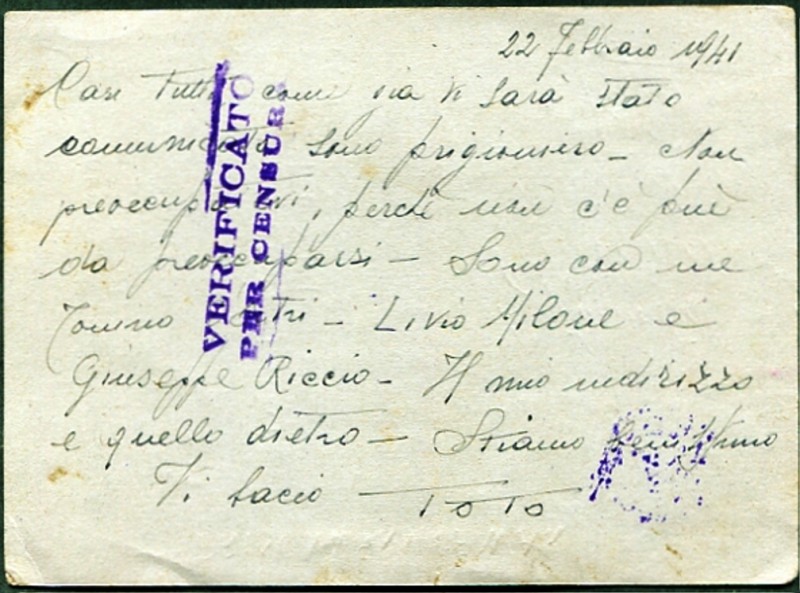 22 Febbraio 1941
Cari Tutti come già vi sarà stato
comunicato sono prigioniero - Non
preoccupatevi, perchè non c'è più
da preoccuparsi - Sono con me
Tonino - Livio Milone e
Giuseppe Riccio - Il mio indirizzo
e quello dietro - Stiamo benissimo
Vi bacio - Totò
VERIFICATO
PER CENSURA